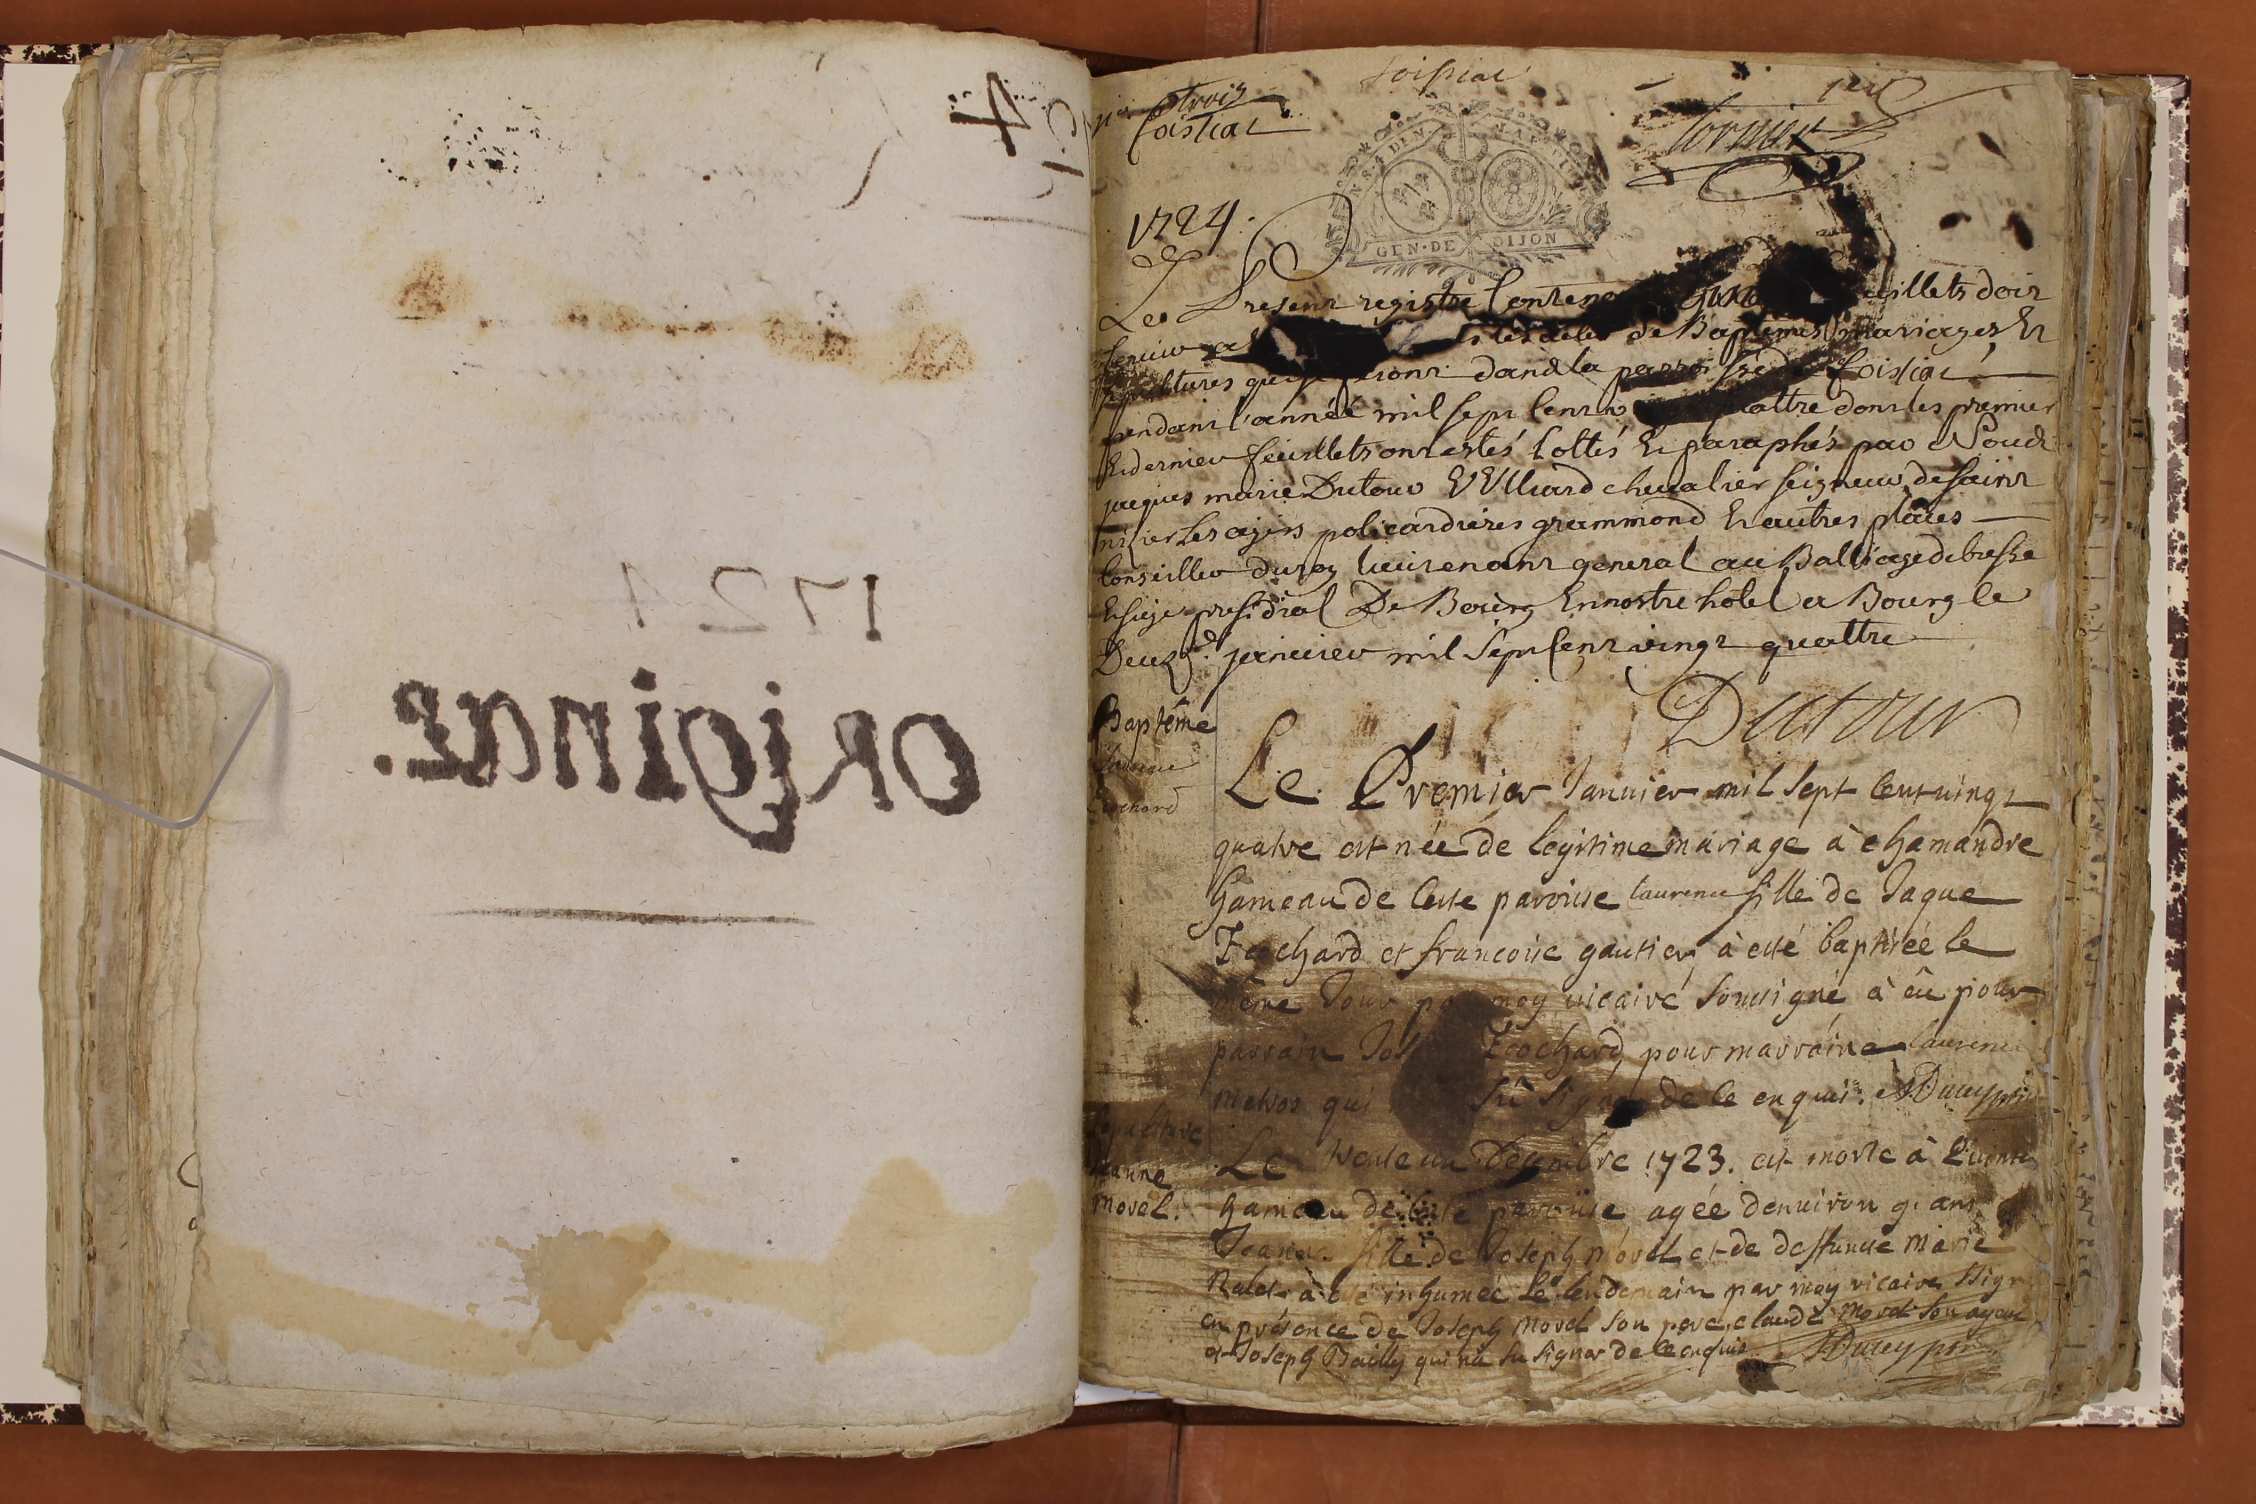 1724
original.
Coissiat
trois
Coissiat
1er
GEN·DE DIJON
1724.
Le Present registre Contenant feuillets doit
servir les actes de Baptemes mariages Et
sepultures qui se feront dans la parroisse de Coissiat
pendant l'année mil sept Cent quattre dont les premier
Et dernier feuillets ont estés Cottés Et paraphés par Nous
jacques marie Dutour VVlliard chevalier seigneur de saint
nizier Les ages policardieres grammond Et autres places
Conseiller du roy lieutenant general au Balliage de bresse
Et siege presidial De Bourg En nostre hotel a Bourg le
Deuxe. janvier mil Sept Cent vingt quattre
Dutour
Baptême
Le Premier Janvier mil sept cent vingt
quatre est née de legitime mariage à chamandre
hameau de cette paroisse laurence fille de Jaque
Ecochard et francoise gautier, à esté baptisée le
même Jour par moy vicaire soussigné à eû pour
parrain Ecochard, pour marraine laurence
qui sû signer de ce enquis. Ducey ptre
Sepulture
Jeanne
Morel.
Le trente un Decembre 1723. est morte à
hameau de cette paroisse agée denviron 9. ans
Jeanne fille de Joseph Morel et de deffuncte Marie
à esté inhumée le lendemain par moy vicaire ssigné
en présence de Joseph Morel son pere, claude Morel son ayeul
et Joseph Bailly qui n'a su signer de ce enquis. Ducey ptre